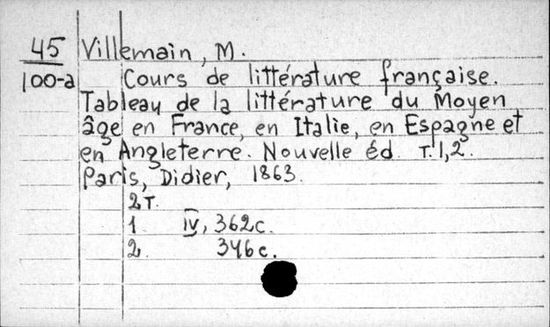 45 Villemain, M.
100-a Cours de littérature française.
Tableau de la littérature du Moyen
âge en France, en Italie, en Espagne et
en Angleterre. Nouvelle éd. T. 1, 2.
Paris, Didier, 1863.
2 т.
1 IV, 362 с.
2. 346 с.